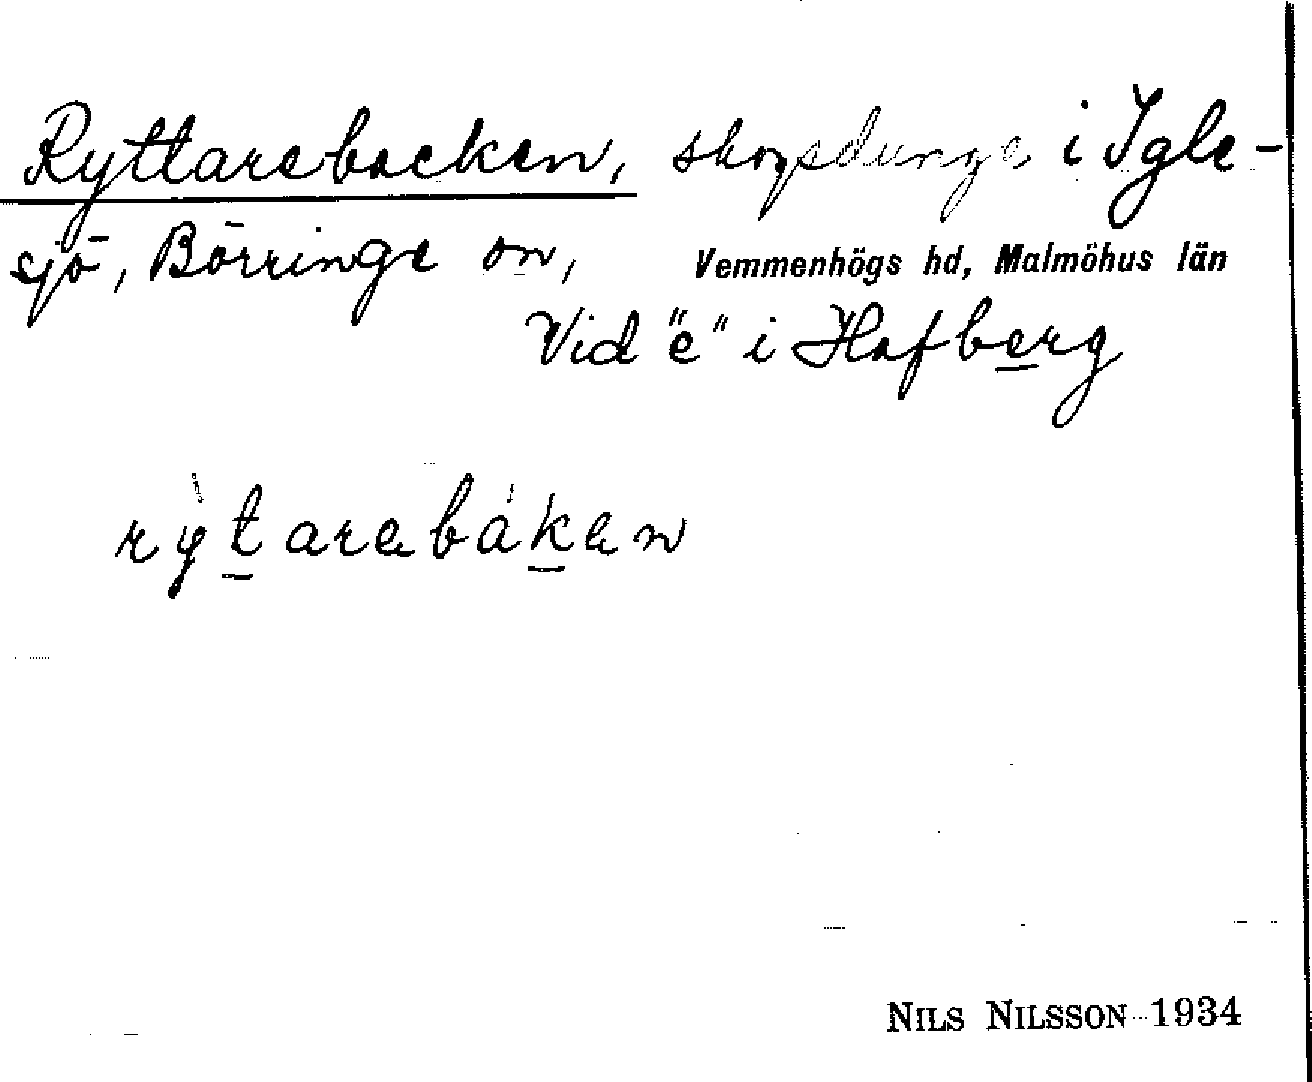 Ryttarebacken, skogsdunge i Igle-
sjö, Börringe sn, Vemmenhögs hd, Malmöhus län
Vid "e" i Hafberg
rỳtarebáken
NILS NILSSON 1934